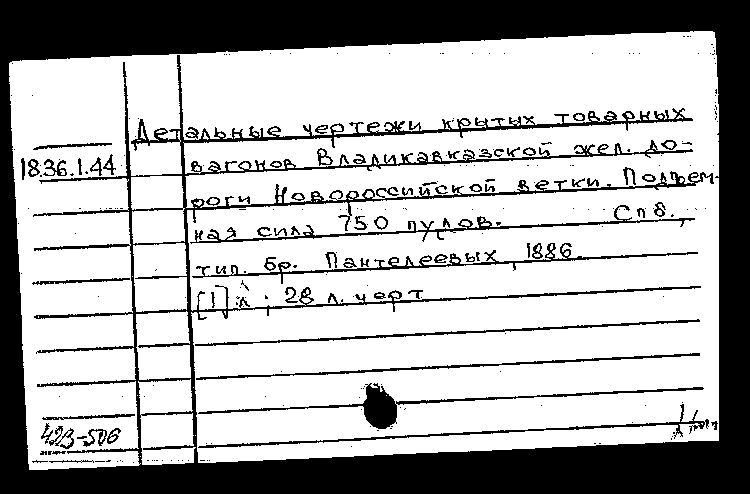 Детальные чертежи крытых товарных
18.36.1.44 вагонов Владикавказской жел. до-
роги Новороссийской ветки. Подъем-
ная сила 750 пудов. Спб.,
тип. бр. Пантелеевых, 1886.
[1] л; 28 л. черт
423-506